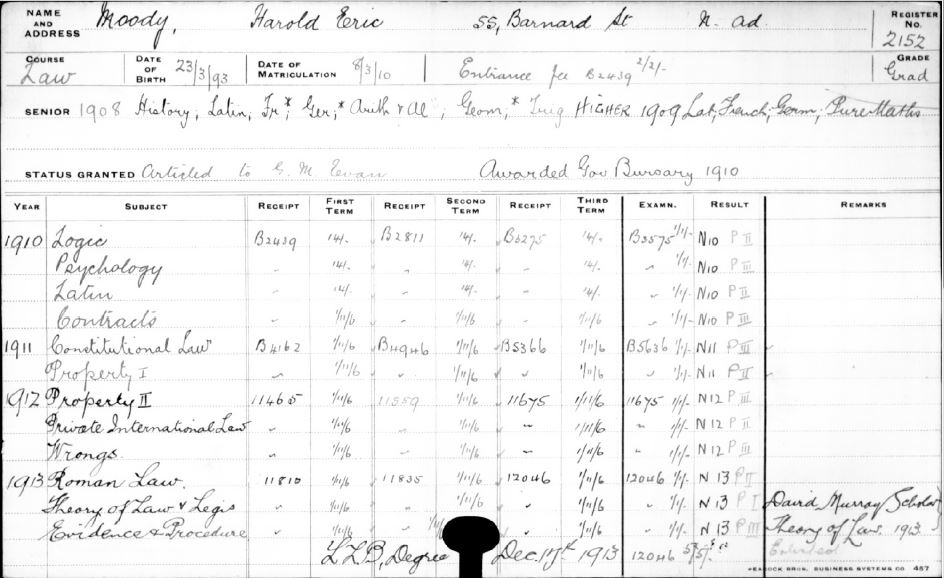 NAME AND ADDRESS Moody, Harold Eric 55, Barnard St N. ad REGISTER No. 2152
COURSE Law DATE OF BIRTH 23/3/93 DATE OF MATRICULATION 8/3/10 Entrance fee B2439 2/2/- GRADE Grad
SENIOR 1908 History, Latin, Fr*, Ger,* Arith & Al, Geom,* Trig HIGHER 1909 Lat, French, Germ, Pure Maths
STATUS GRANTED Articled to G. M. Evan Awarded Gov Bursary 1910
YEAR SUBJECT RECEIPT FIRST TERM RECEIPT SECOND TERM RECEIPT THIRD TERM EXAMN. RESULT REMARKS
1910 Logic B2439 14/- B2811 14/- B3275 14/- B3575 1/1/- N10 P II
Psychology " 14/- " 14/- " 14/- " 1/1/- N10 P III
Latin " 14/- " 14/- " 14/- " 1/1/- N10 P II
Contracts " 1/11/6 " 1/11/6 " 1/11/6 " 1/1/- N10 P III
1911 Constitutional Law B4162 1/11/6 B4946 1/11/6 B5366 1/11/6 B5636 1/1/- N11 P III
Property I " 1/11/6 " 1/11/6 " 1/11/6 " 1/1/- N11 P II
1912 Property II 11465 1/11/6 11559 1/11/6 11675 1/11/6 11675 1/1/- N12 P III
Private International Law " 1/11/6 " 1/11/6 " 1/11/6 " 1/1/- N12 P II
Wrongs. " 1/11/6 " 1/11/6 " 1/11/6 " 1/1/- N12 P III
1913 Roman Law. 11810 1/11/6 11835 1/11/6 12046 1/11/6 12046 1/1/- N 13 P II
Theory of Law & Legis " 1/11/6 1/11/6 " 1/11/6 " 1/1/- N 13 P I David Murray Scholar
Evidence & Procedure " 1/11/6 " 1/11/6 " 1/1/- N 13 P III Theory of Law 1913
LLB, Degree Dec. 17th 1913 12046 5/5/- Entered
PEACOCK BROS. BUSINESS SYSTEMS CO 457